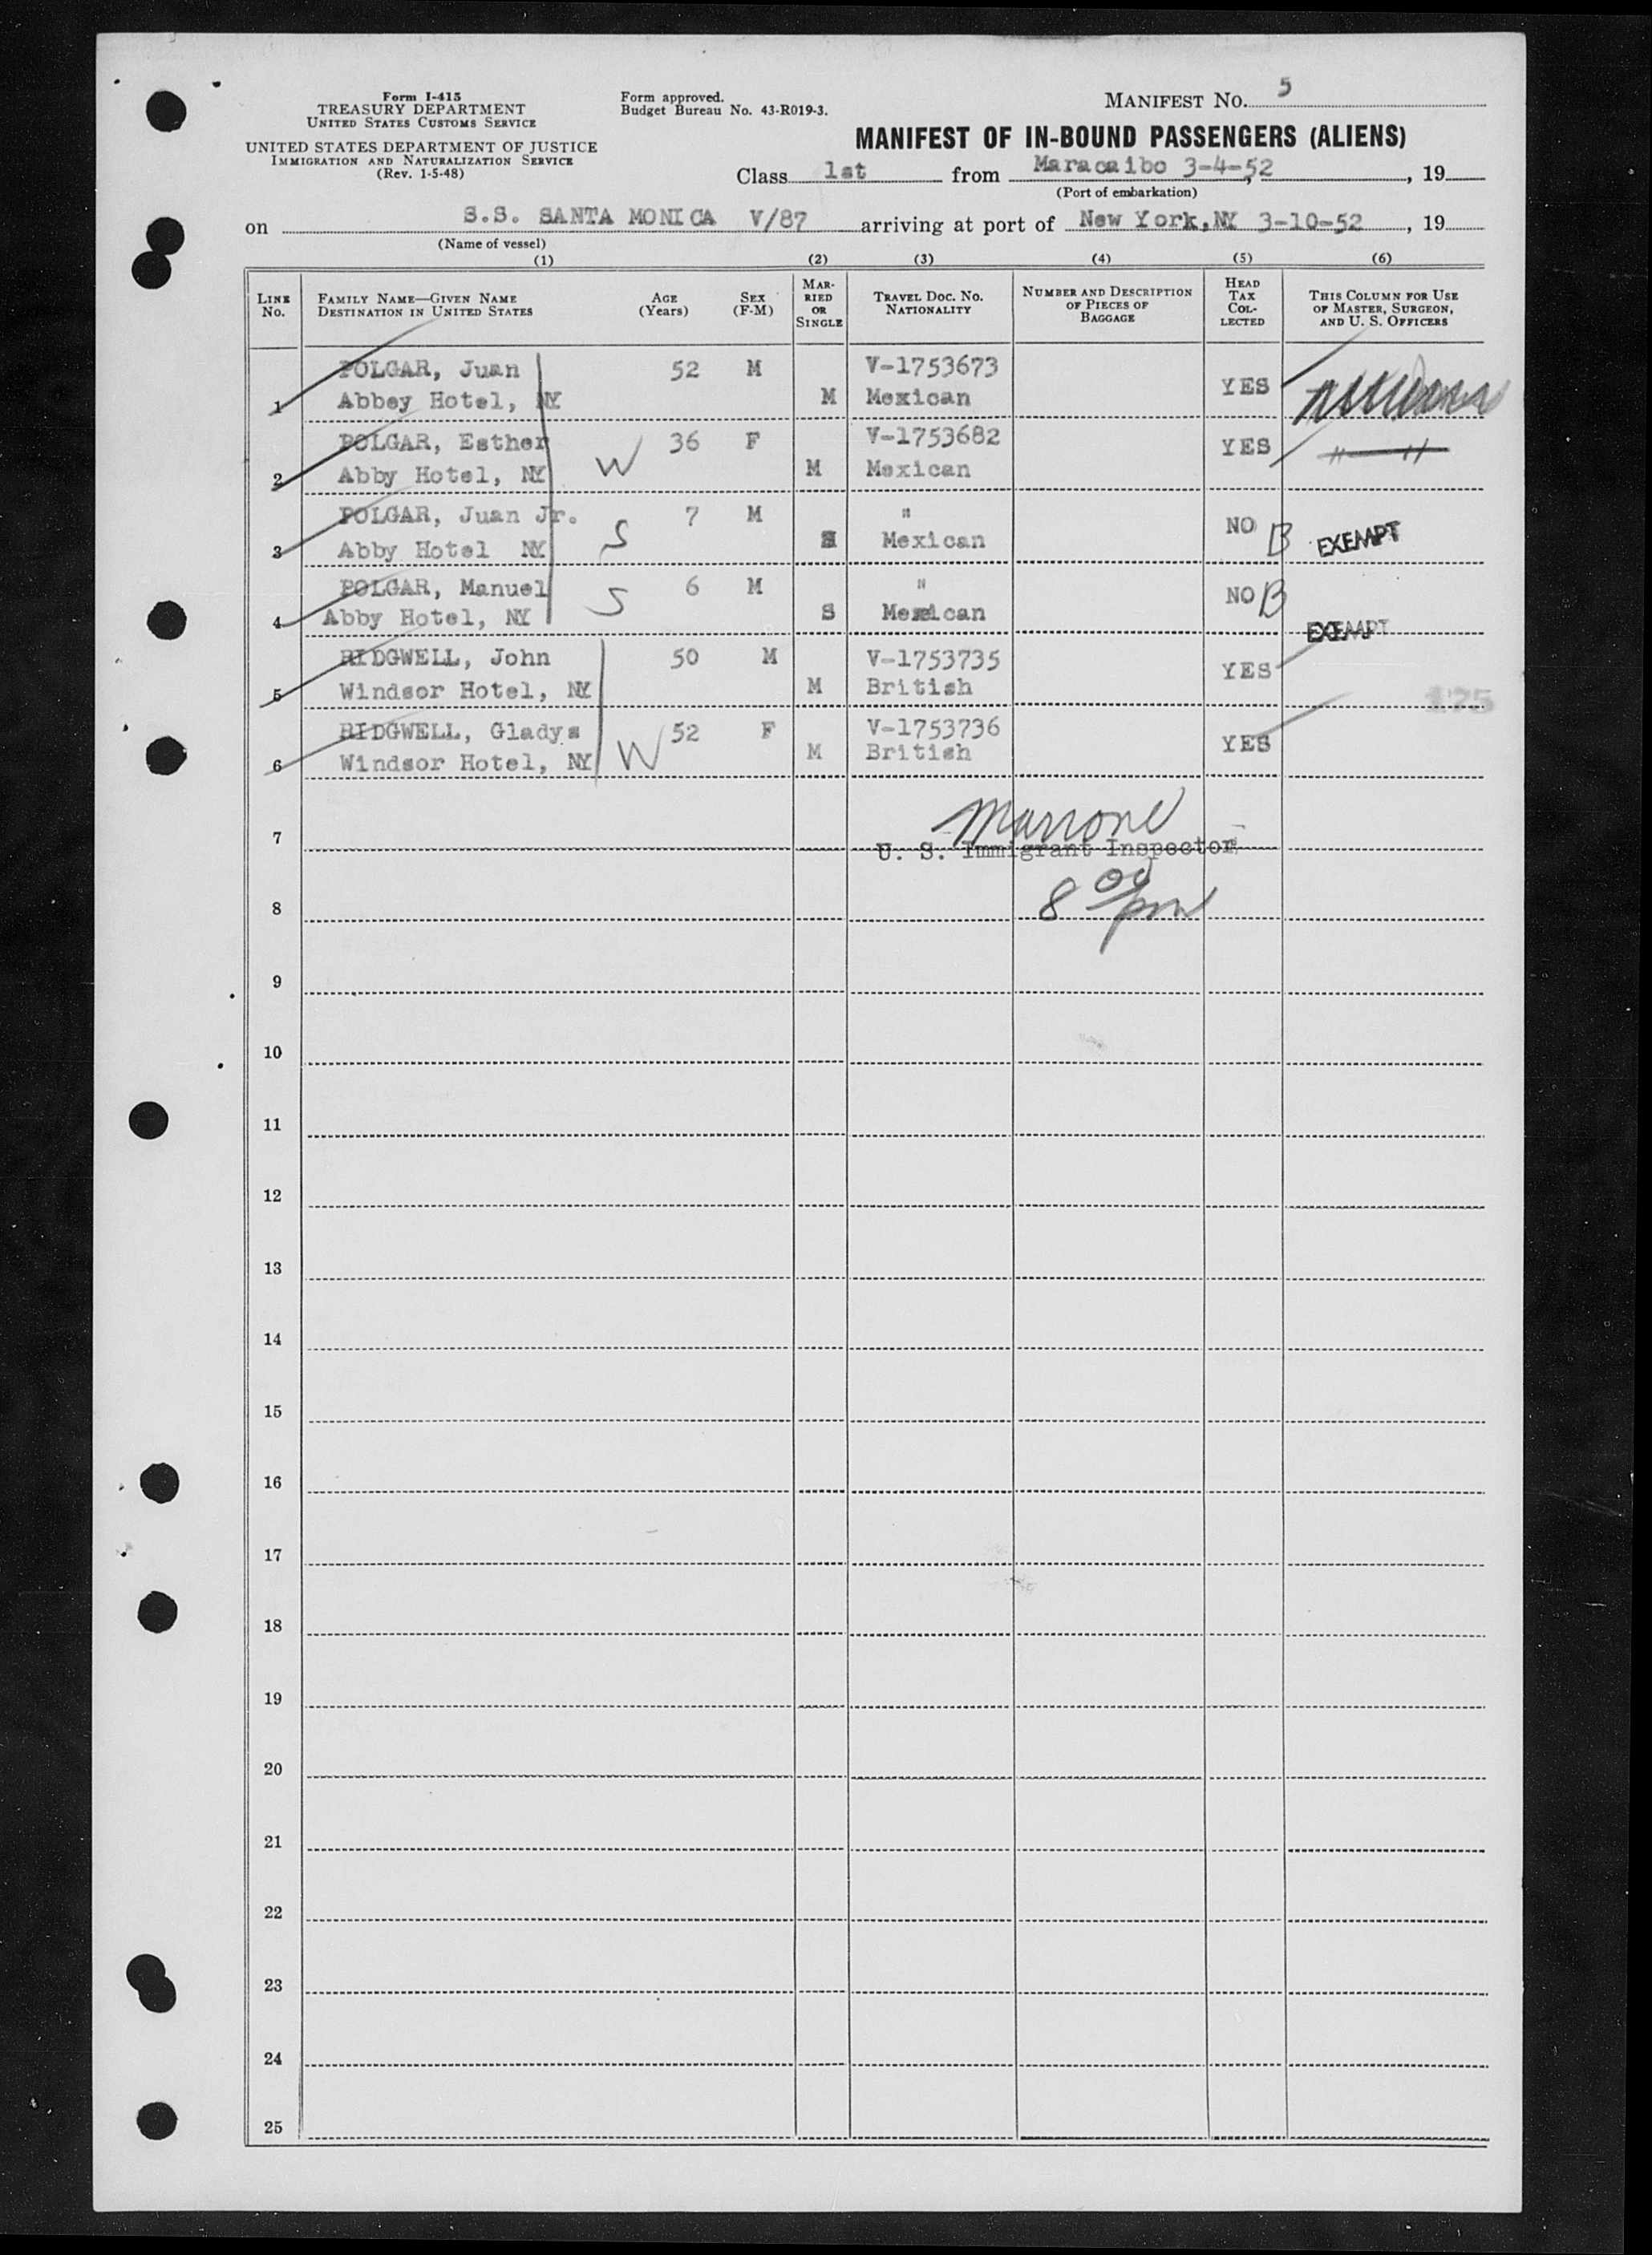 Form I-415
TREASURY DEPARTMENT
UNITED STATES CUSTOMS SERVICE
UNITED STATES DEPARTMENT OF JUSTICE
IMMIGRATION AND NATURALIZATION SERVICE
(Rev. 1-5-48)
Form approved.
Budget Bureau No. 43-R019-3.
MANIFEST NO. 5
MANIFEST OF IN-BOUND PASSENGERS (ALIENS)
Class 1st from Maracaibo 3-4-52, 19
(Port of embarkation)
on S.S. SANTA MONICA V/87 arriving at port of New York, NY 3-10-52, 19
(Name of vessel)
(1) (2) (3) (4) (5) (6)
LINE No. FAMILY NAME—GIVEN NAME DESTINATION IN UNITED STATES AGE (Years) SEX (F-M) MARRIED OR SINGLE TRAVEL DOC. NO. NATIONALITY NUMBER AND DESCRIPTION OF PIECES OF BAGGAGE HEAD TAX COLLECTED THIS COLUMN FOR USE OF MASTER, SURGEON, AND U. S. OFFICERS
POLGAR, Juan 52 M V-1753673
1 Abbey Hotel, NY M Mexican YES
POLGAR, Esther W 36 F V-1753682 YES " "
2 Abby Hotel, NY M Mexican
POLGAR, Juan Jr. S 7 M " NO B EXEMPT
3 Abby Hotel NY S Mexican
POLGAR, Manuel S 6 M " NO B
4 Abby Hotel, NY S Mexican EXEMPT
RIDGWELL, John 50 M V-1753735 YES
5 Windsor Hotel, NY M British 175
RIDGWELL, Gladys W 52 F V-1753736 YES
6 Windsor Hotel, NY M British
Marrone
7 U. S. Immigrant Inspector
8 8 00 pm
9
10
11
12
13
14
15
16
17
18
19
20
21
22
23
24
25